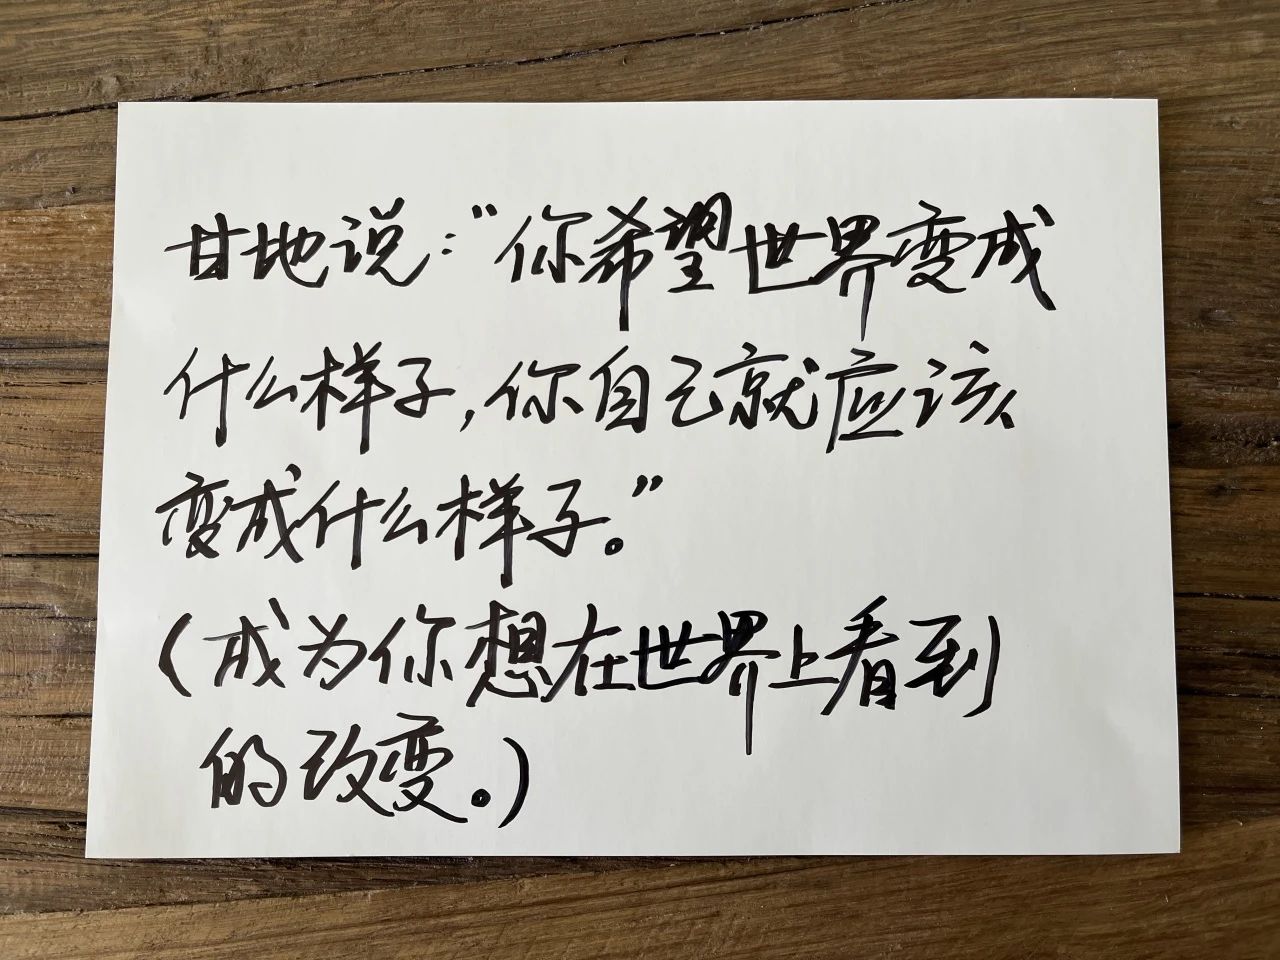 甘地说:“你希望世界变成
什么样子,你自己就应该
变成什么样子。”
(成为你想在世界上看到
的改变。)